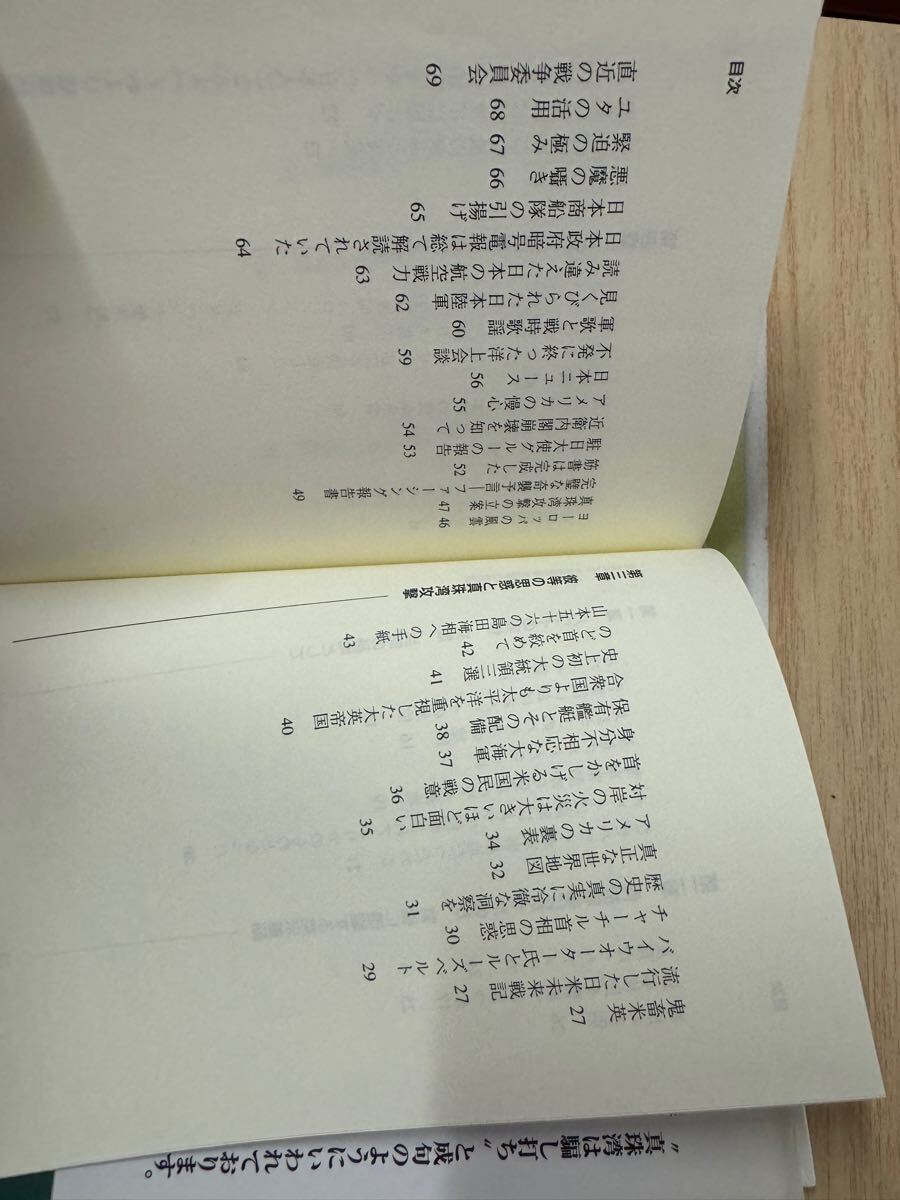 鬼畜米英 27
流行した日米未来戦記 27
バイウォーター氏とルーズベルト 29
チャーチル首相の思惑 30
歴史の真実に冷徹な洞察を 31
真正な世界地図 32
アメリカの裏表 34
対岸の火災は大きいほど面白い 35
首をかしげる米国民の戦意 36
身分不相応な大海軍 37
保有艦艇とその配備 38
合衆国よりも太平洋を重視した大英帝国 40
史上初の大統領三選 41
のど首を絞めて 42
山本五十六の島田海相への手紙 43
第三章 彼等の思惑と真珠湾攻撃
ヨーロッパの風雲 46
真珠湾攻撃の立案 47
完璧な奇襲予言―ファーシング報告書 49
筋書は完成した 52
駐日大使グルーの報告 53
近衛内閣崩壊を知って 54
アメリカの慢心 55
日本ニュース 56
不発に終つた洋上会談 59
軍歌と戦時歌謡 60
見くびられた日本陸軍 62
読み違えた日本の航空戦力 63
日本政府暗号電報は総て解読されていた 64
日本商船隊の引揚げ 65
悪魔の囁き 66
緊迫の極み 67
ユタの活用 68
直近の戦争委員会 69
目次
“真珠湾は騙し打ち”と成句のようにいわれております。